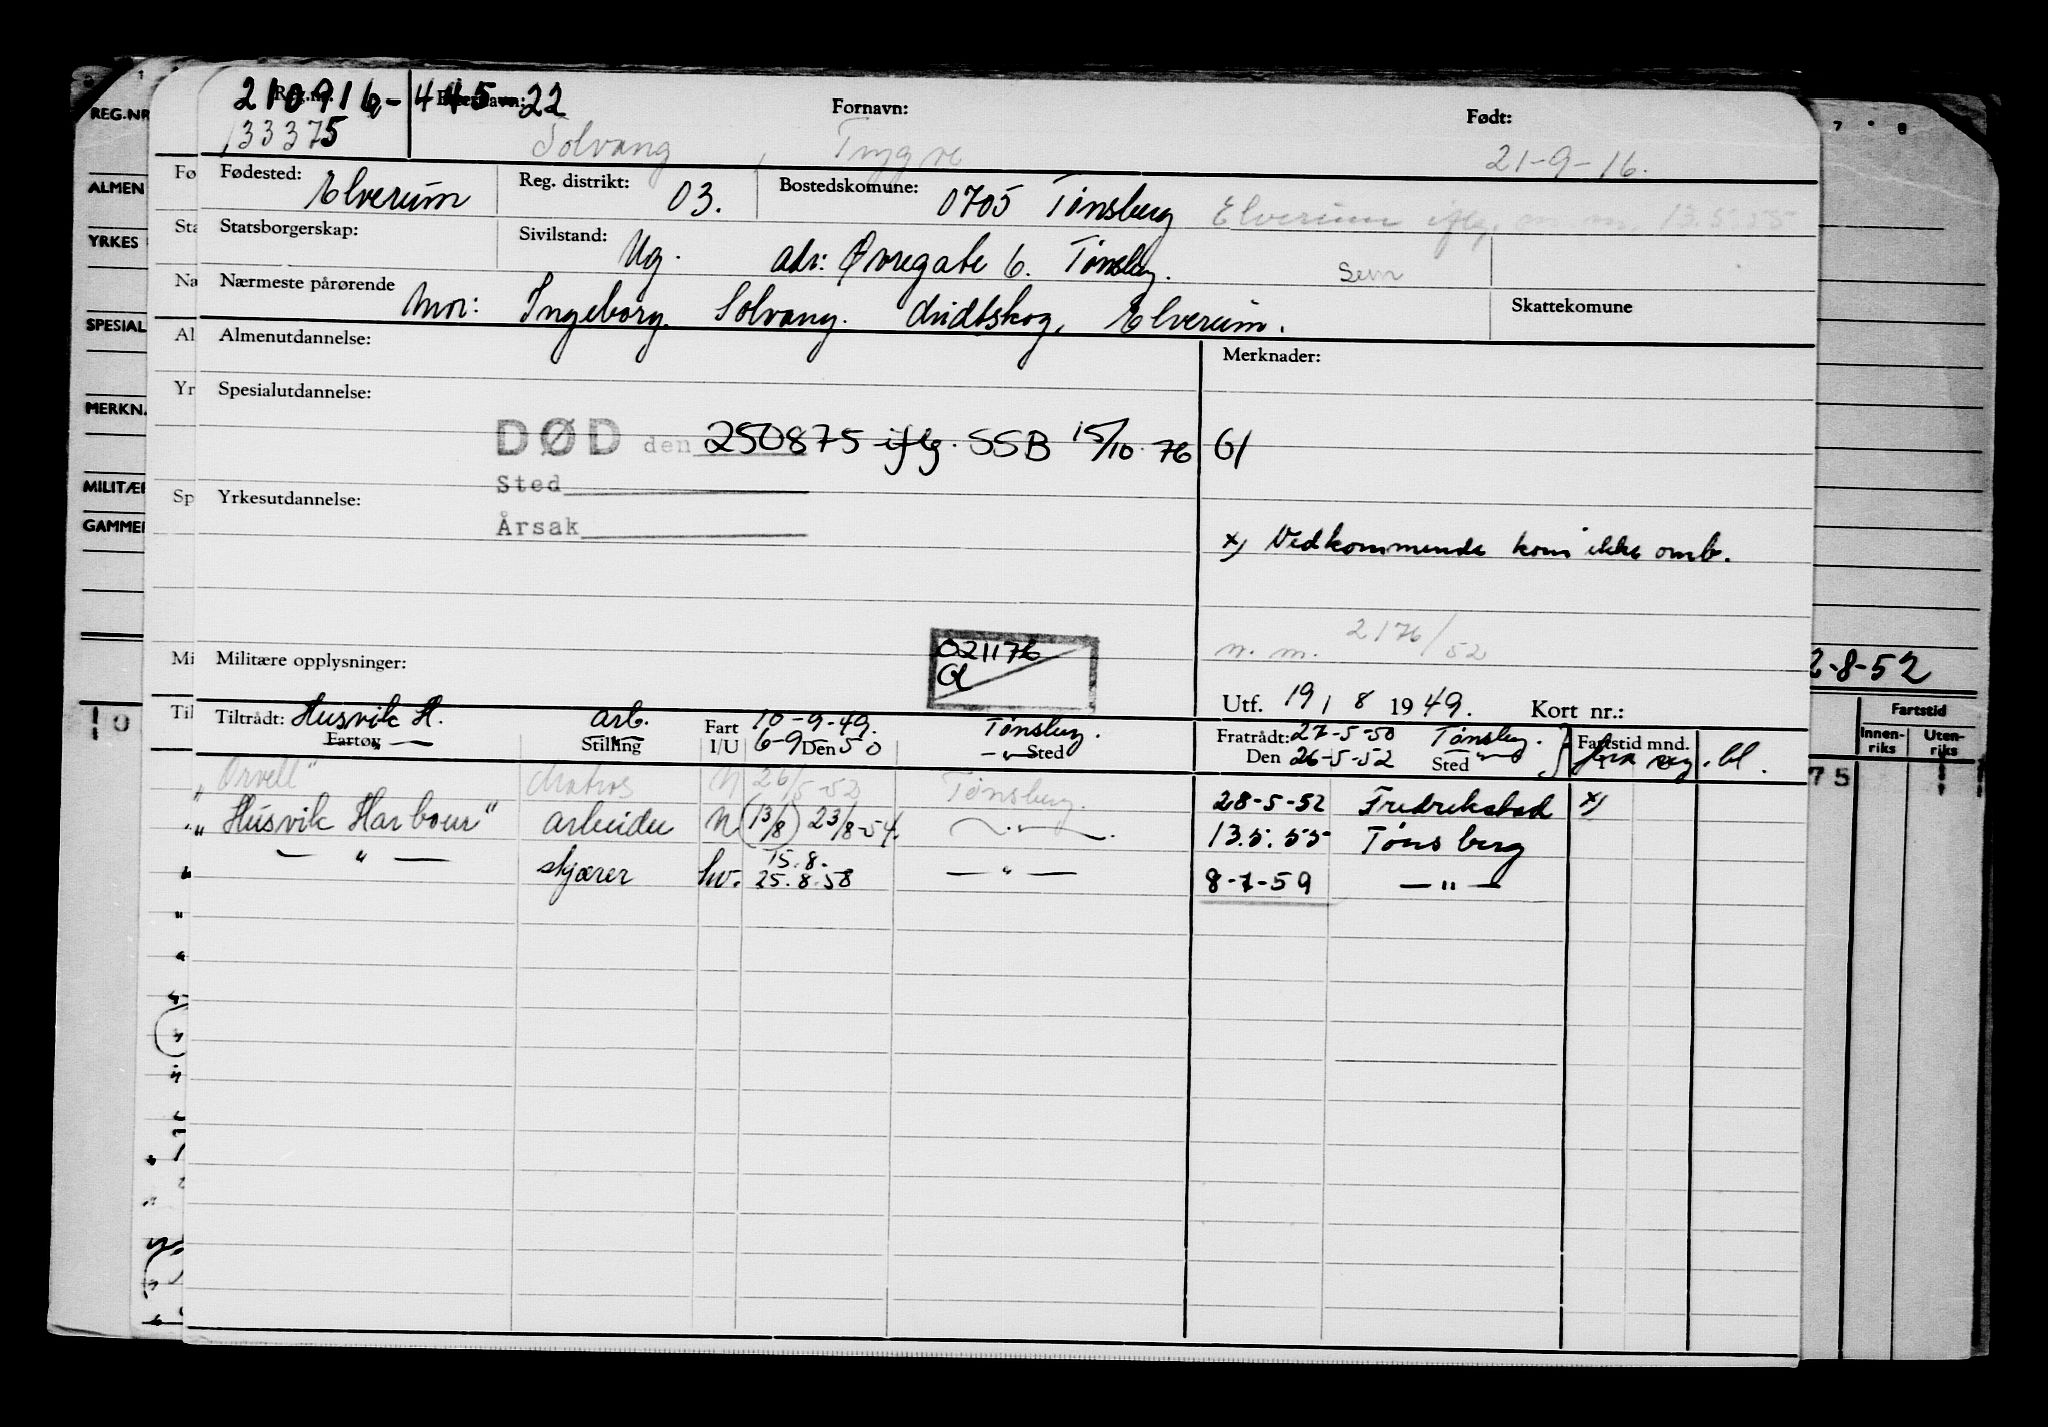 210916-44522
Reg.nr. Etternavn: Fornavn: Født:
133375 Solvang, Trygve 21-9-16.
Fødested: Elverum Reg. distrikt: 03. Bostedskomune: 0705 Tønsberg Elverum iflg. 13.5.55
Statsborgerskap: Sivilstand: Ug. adr: Øvregate 6. Tønsberg. Sem
Nærmeste pårørende Mor: Ingeborg Solvang. Elverum. Skattekomune
Almenutdannelse: Merknader:
Spesialutdannelse:
DØD den 250875 iflg. SSB 15/10 76 G/
Sted
Yrkesutdannelse:
Årsak
x) Vedkommende kom ikke omb.
n. m. 2176/52
Militære opplysninger: 021176
Utf. 19/8 1949. Kort nr.:
Tiltrådt: Husvik H. arb. 10-9-49. Tønsberg. Fratrådt: 27-5-50 Tønsberg.
Fartøy — " — Stilling Fart I/U 6-9 Den 50 — " — Sted Den 26-5-52 Sted — " — Fartstid mnd.
"Orvell" Matros N 26/5-52 Tønsberg. 28-5-52 Fredrikstad x)
"Husvik Harbour" arbeider N (13/8) 23/8-54. — " — 13.5.55 Tønsberg
— " — skjærer hv. 15.8. 25.8.58 — " — 8-1-59 — " —
REG.NR
ALMEN
YRKES
SPESIAL
MERKN.
MILITÆR
GAMMEL
Fø
Sta
Na
Al
Yr
Sp
Mi
Til
2-8-52
Fartstid
Innenriks Utenriks
75